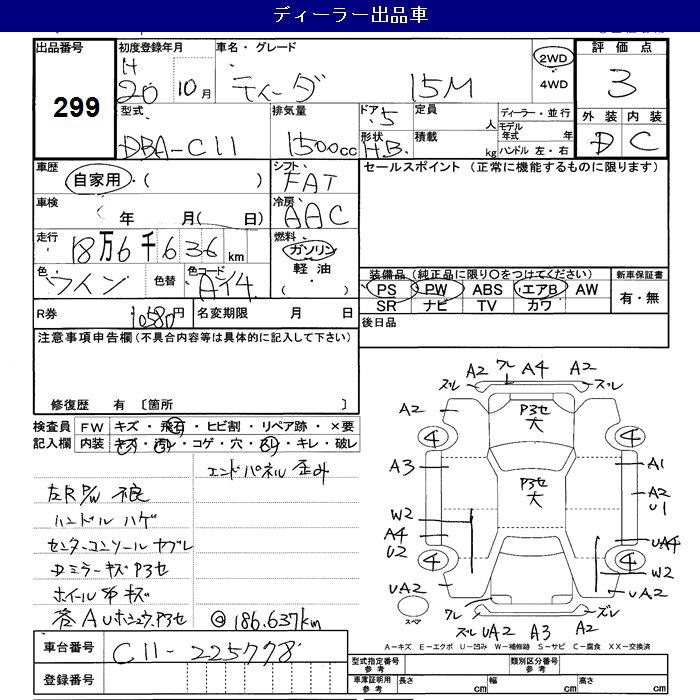 ディーラー出品車
出品番号
299
初度登録年月
H
20 10月
車名・グレード
ティーダ 15M
2WD
4WD
評価点
3
外装 内装
D C
型式
DBA-C11
排気量
1500cc
ドア 5
形状 H.B.
定員 人
積載 kg
ディーラー・並行
モデル年式 年
ハンドル 左・右
車歴
自家用・( )
シフト
FAT
セールスポイント (正常に機能するものに限ります)
車検
年 月( 日)
冷房
AAC
走行
18万6千636km
燃料
ガソリン
軽油
( )
色
ワイン
色替
色コード
A14
装備品 (純正品に限り○をつけてください)
PS PW ABS エアB AW
SR ナビ TV カワ
新車保証書
有・無
R券 10580円
名変期限 月 日
後日品
注意事項申告欄(不具合内容等は具体的に記入して下さい)
修復歴 有 〔箇所 〕
検査員記入欄
FW キズ・飛石・ヒビ割・リペア跡・×要
内装 キズ・汚レ・コゲ・穴・スレ・キレ・破レ
エンドパネル 歪み
左R P/W 不良
ハンドル ハゲ
センターコンソール ヤブレ
Dミラーキズ P3セ
ホイール 4 キズ
各A Uホシュウ.P3セ
@ 186.637km
A2 クレ A4 A2
ズレ ズレ
A2 P3セ 大 A2
4 4
A3 P3セ 大 A1
A2
U1
W2
A4
U2
UA4
W2
4 4
UA2 UA2
スペア
クレ ズレ
ズレ UA2 A3 A2
A-キズ E-エクボ U-凹み W-補修跡 S-サビ C-腐食 XX-交換済
車台番号
C11-225778
登録番号
型式指定番号
参考
類別区分番号
参考
車庫証明用
参考
長さ cm 幅 cm 高さ cm